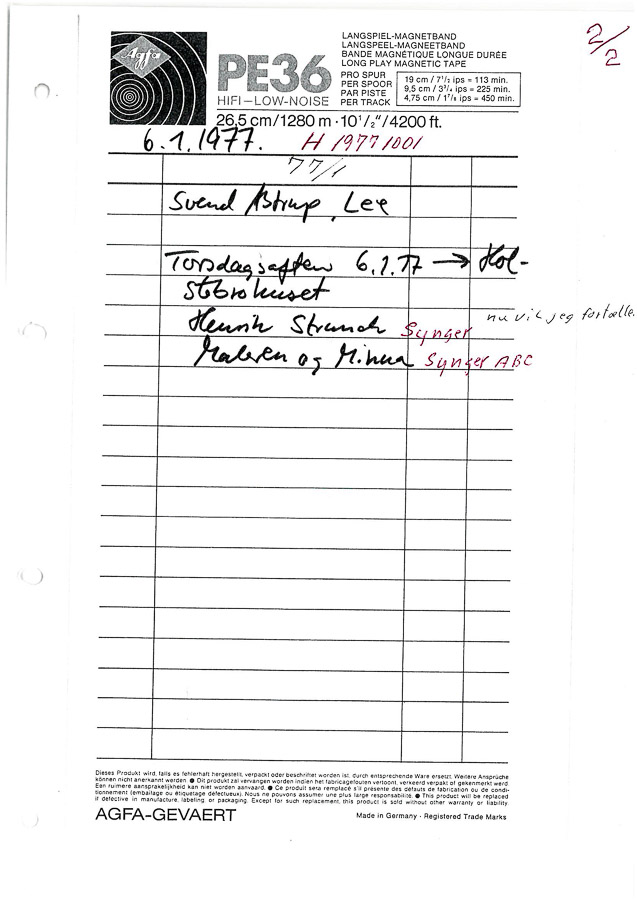 2/2
Agfa
PE36
HIFI–LOW–NOISE
LANGSPIEL-MAGNETBAND
LANGSPEEL-MAGNEETBAND
BANDE MAGNÉTIQUE LONGUE DURÉE
LONG PLAY MAGNETIC TAPE
PRO SPUR
PER SPOOR
PAR PISTE
PER TRACK
19 cm / 7 1/2 ips = 113 min.
9,5 cm / 3 3/4 ips = 225 min.
4,75 cm / 1 7/8 ips = 450 min.
26,5 cm/1280 m · 10 1/2"/4200 ft.
6.1.1977. H 1977/001
77/1
Svend Astrup, Lee
Torsdagsaften 6.1.77 → Hol-
stebrohuset
nu vil jeg fortælle.
Henrik Strunch Synger
Maleren og Minua Synger ABC
Dieses Produkt wird, falls es fehlerhaft hergestellt, verpackt oder beschriftet worden ist, durch entsprechende Ware ersetzt. Weitere Ansprüche
können nicht anerkannt werden. ● Dit produkt zal vervangen worden indien het fabricagefouten vertoont, verkeerd verpakt of gekenmerkt werd.
Een ruimere aansprakelijkheid kan niet worden aanvaard. ● Ce produit sera remplacé s'il présente des défauts de fabrication ou de condi-
tionnement (emballage ou étiquetage défectueux). Nous ne pouvons assumer une plus large responsabilité. ● This product will be replaced
if defective in manufacture, labeling, or packaging. Except for such replacement, this product is sold without other warranty or liability.
AGFA-GEVAERT
Made in Germany · Registered Trade Marks